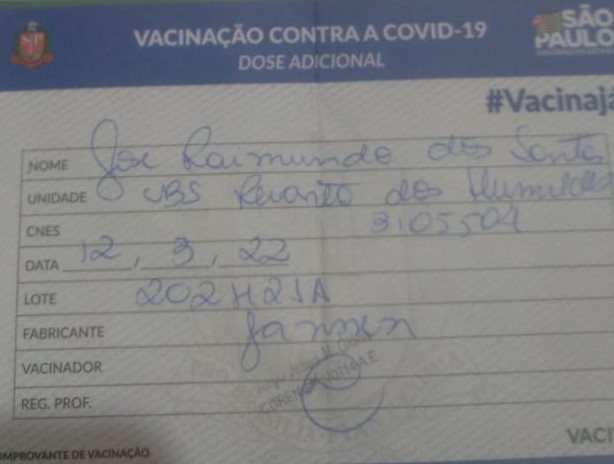 VACINAÇÃO CONTRA A COVID-19
DOSE ADICIONAL
SÃO
PAULO
#Vacinajá
NOME Jose Raimundo dos Santos
UNIDADE UBS Recanto dos Humildes
CNES
DATA 12, 3, 22
LOTE 202H21A
FABRICANTE Janssen
VACINADOR
REG. PROF.
OMPROVANTE DE VACINAÇÃO
VACI